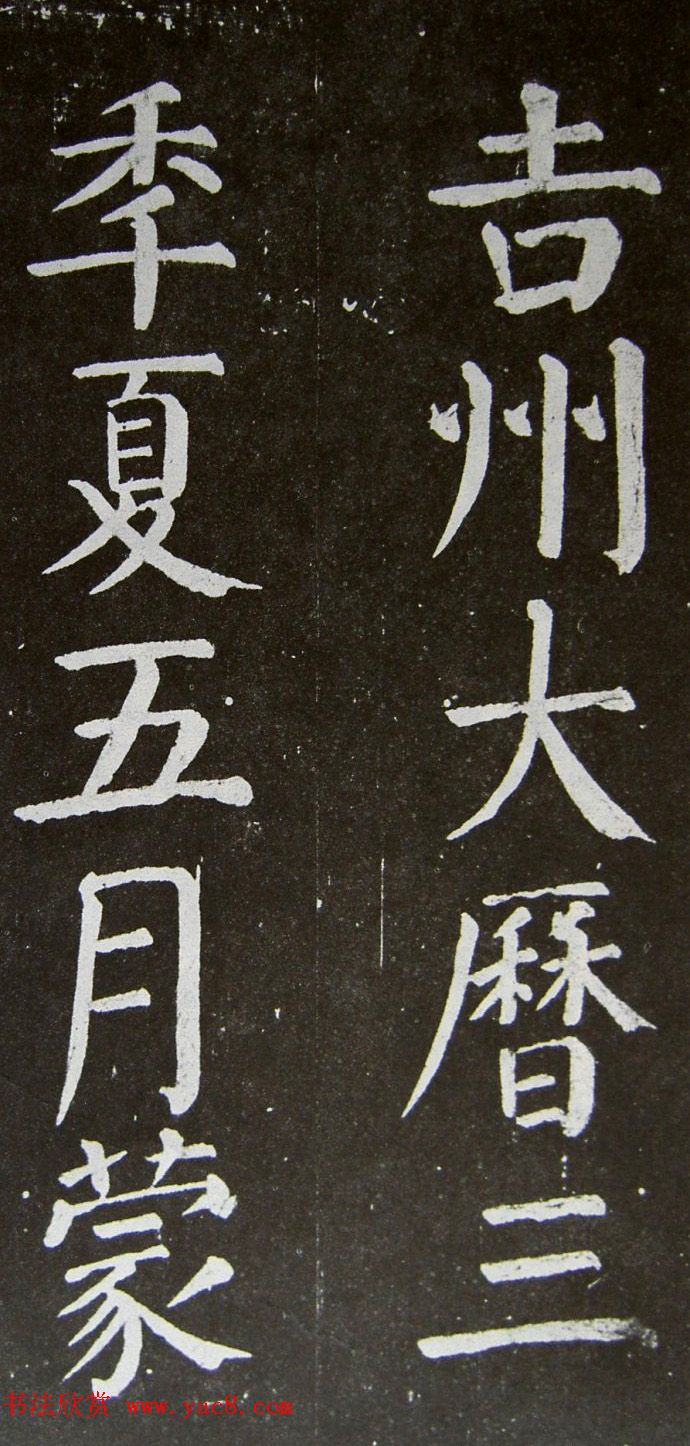 吉州大曆三
季夏五月蒙
书法欣赏 www.yac8.com